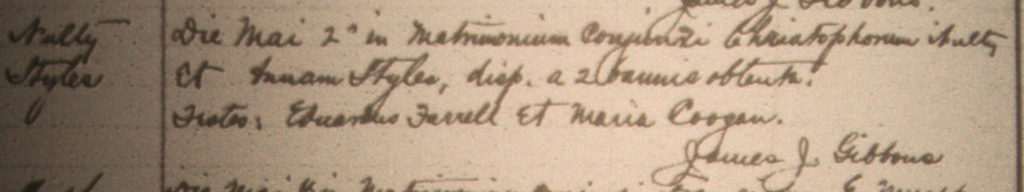 James J. Gibbons.
Nulty Die Mai 2° in Matrimonium Conjunxi Christophorum Nulty
Styles Et Annam Styles, disp. a 2 bannis obtenta.
Testes: Eduardus Farrell Et Maria Coogan.
James J. Gibbons
Die Mai